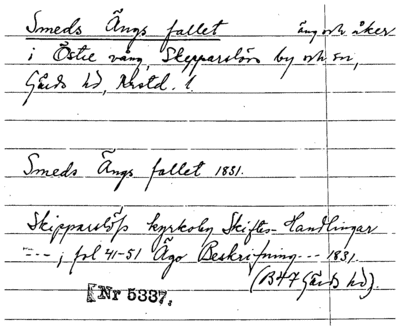 Smeds Ängs fallet äng och åker
i Östie vång, Skepparslövs by och sn,
Gärds hd, Krstd. l.
Smeds Ängs fallet 1831.
Skipparslöfs kyrkoby Skiftes-Handlingar
---, fol 41-51 Ägo Beskrifning --- 1831.
(B47 Gärds hd).
Nr 5337.